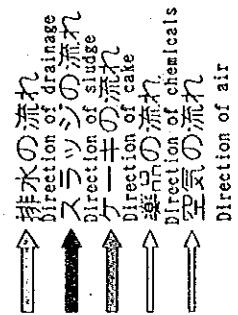 排水の流れ
Direction of drainage
スラッジの流れ
Direction of sludge
ケーキの流れ
Direction of cake
薬品の流れ
Direction of chemicals
空気の流れ
Direction of air